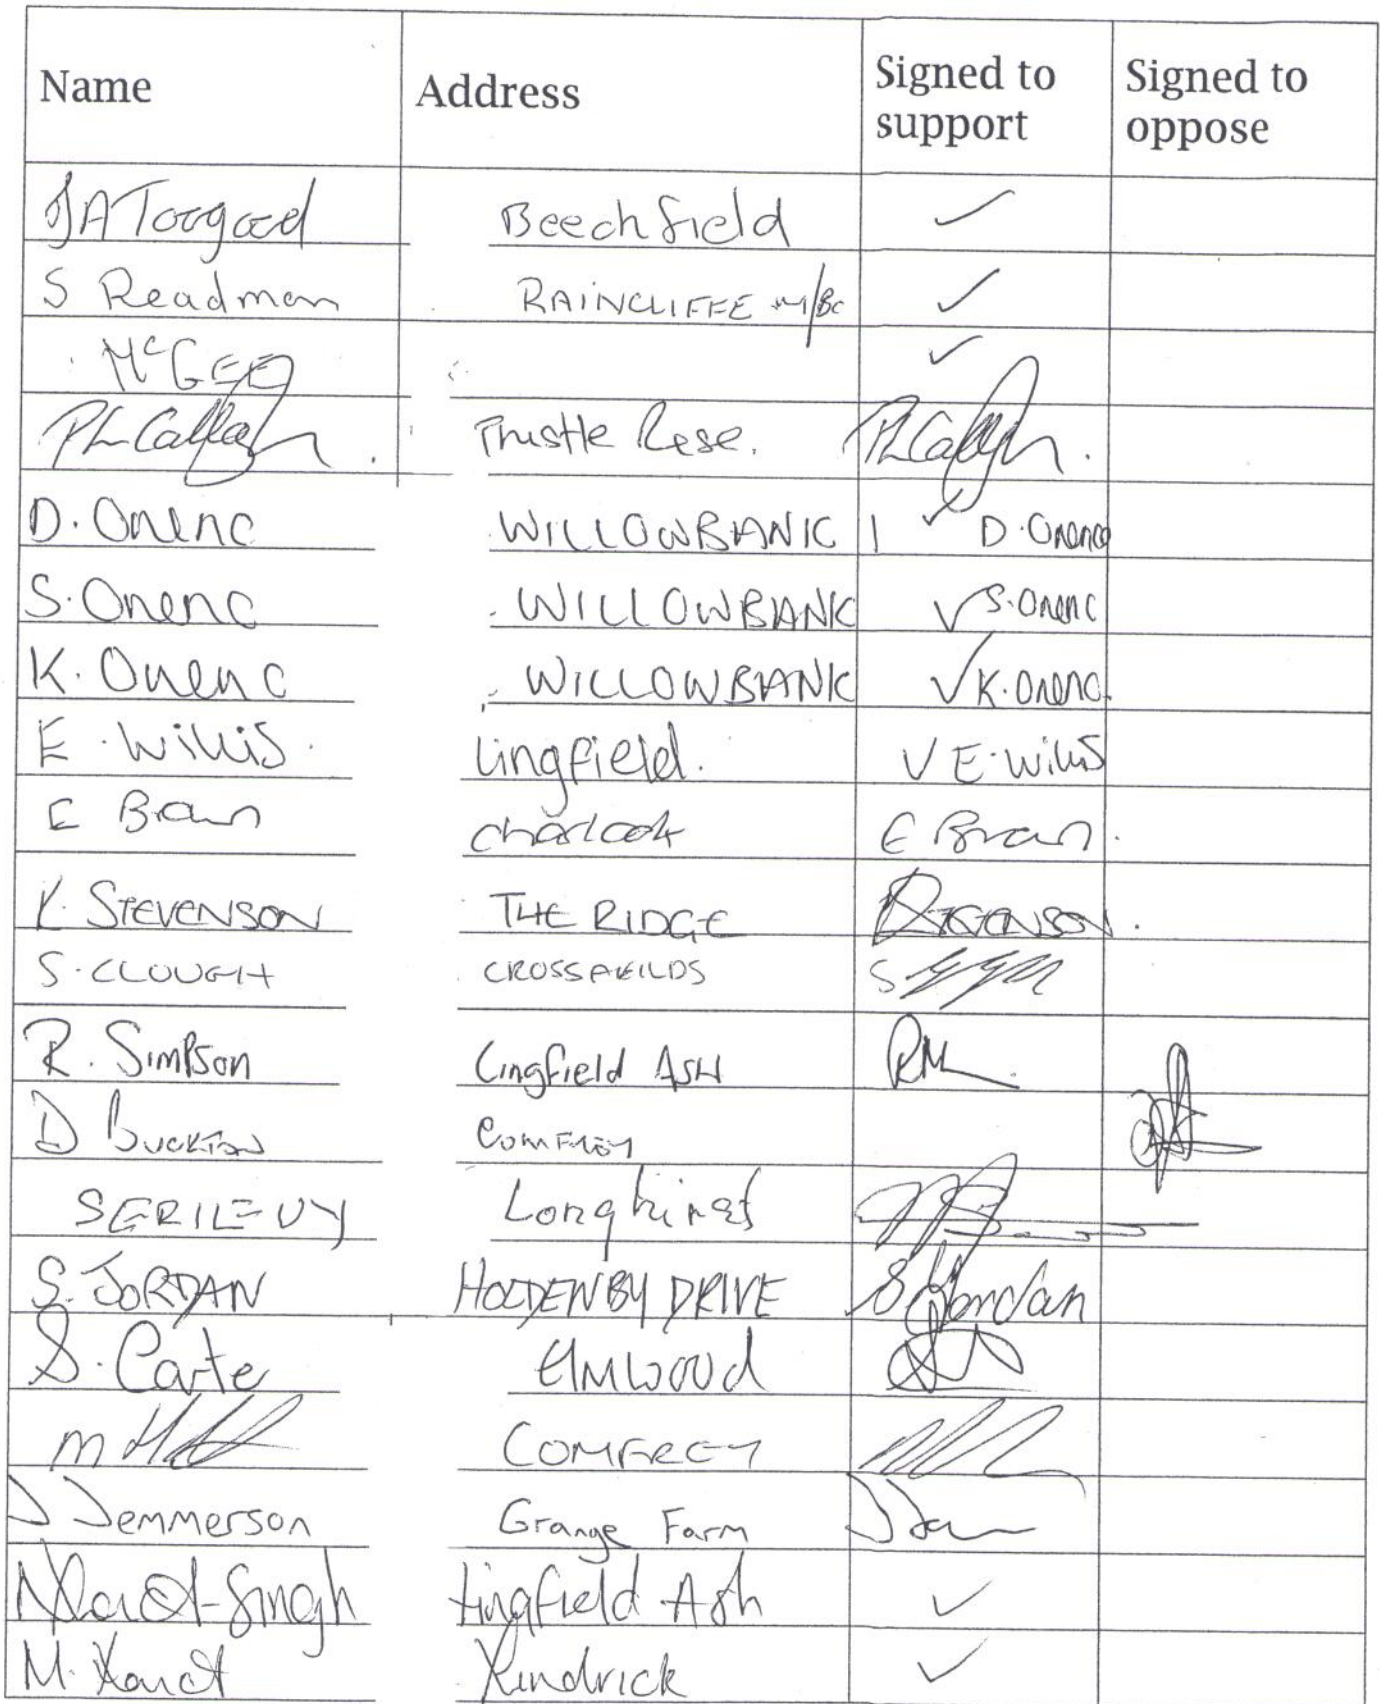 Name Address Signed to support Signed to oppose
JA Toogood Beechfield ✓
S Readman RAINCLIFFE ✓
McGEE ✓
PL Callagh Thistle Rese.
D. Onenc WILLOWBANK ✓ D. Onenc
S. Onenc WILLOWBANK ✓ S. Onenc
K. Onenc WILLOWBANK ✓ K. Onenc
E. Willis. Lingfield. ✓ E. Willis
E Brown Charlock E Brown.
K. STEVENSON THE RIDGE STEVENSON.
S. CLOUGH CROSSFEILDS S
R. Simpson Lingfield ASH
D BUCKTON COMFREY
Longhirst
S. JORDAN HOLDENBY DRIVE S Jordan
S. Carte Elmwood
M COMFREY
J Jemmerson Grange Farm
-Singh Lingfield Ash ✓
M. Kendrick ✓